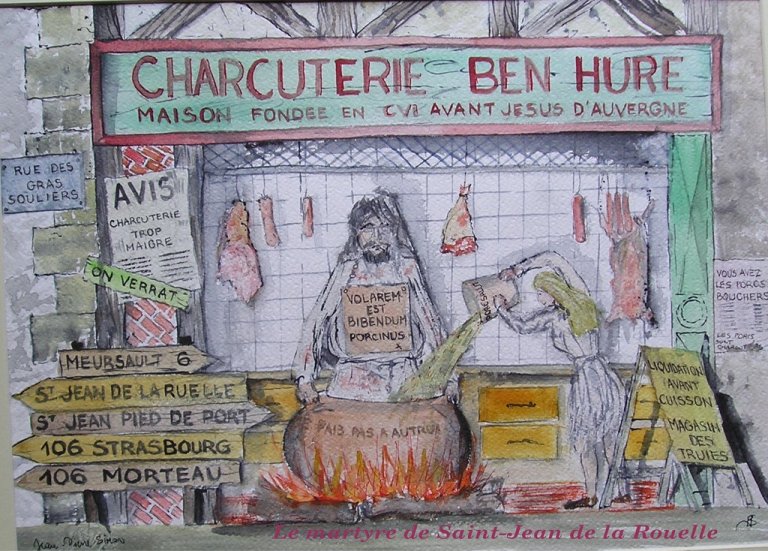 CHARCUTERIE BEN HURE
MAISON FONDEE EN CVI AVANT JESUS D'AUVERGNE
RUE DES
GRAS
SOULIERS
AVIS
CHARCUTERIE
TROP
MAIGRE
ON VERRAT
MEURSAULT 6
ST JEAN DE LA RUELLE
ST JEAN PIED DE PORT
106 STRASBOURG
106 MORTEAU
VOLAREM
EST
BIBENDUM
PORCINUS
FAIS PAS A AUTRUI
VOUS AVEZ
LES PORCS
BOUCHERS
LIQUIDATION
AVANT
CUISSON
MAGASIN
DES
TRUIES
Le martyre de Saint-Jean de la Rouelle